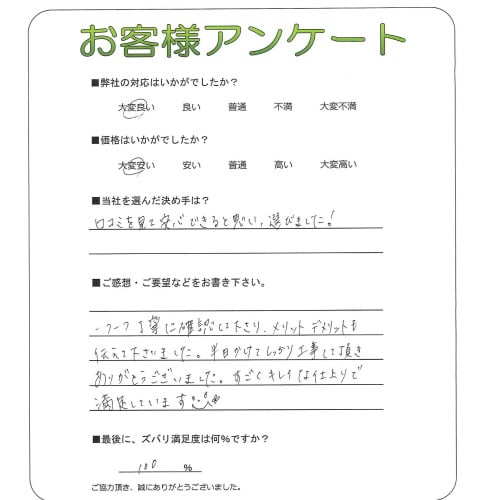 お客様アンケート
■弊社の対応はいかがでしたか？
大変良い 良い 普通 不満 大変不満
■価格はいかがでしたか？
大変安い 安い 普通 高い 大変高い
■当社を選んだ決め手は？
口コミを見て安心できると思い、選びました!
■ご感想・ご要望などをお書き下さい。
一つ一つ丁寧に確認して下さり、メリットデメリットも
伝えて下さいました。半日かけてしっかり工事して頂き
ありがとうございました。すごくキレイな仕上りで
満足しています
■最後に、ズバリ満足度は何％ですか？
100 ％
ご協力頂き、誠にありがとうございました。